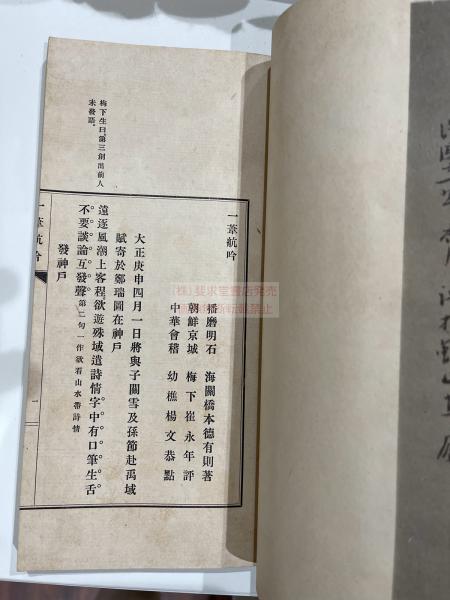 一葦航吟
播磨明石 海關橋本德有則著
朝鮮京城 梅下崔永年評
中華會稽 幼樵楊文恭點
大正庚申四月一日將與子關雪及孫節赴禹域
賦寄於鄒瑞圖在神戶
遠逐風潮上客程。欲遊殊域遣詩情。字中有口筆生舌。
不要談論互發聲。第二句一作欲看山水帶詩情
發神戶
梅下生曰。第三創出前人
未發語。
一葦航吟
一